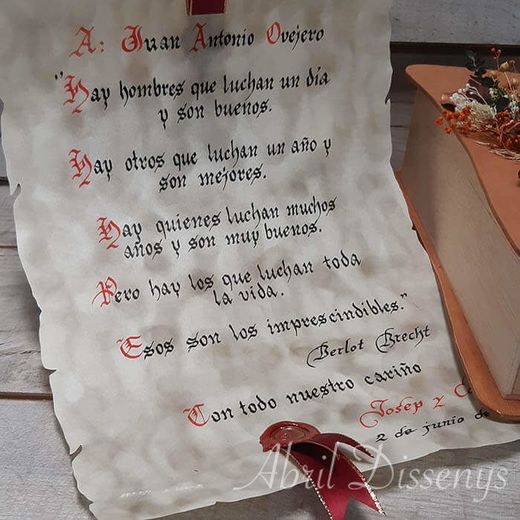 A: Juan Antonio Ovejero
"Hay hombres que luchan un día
y son buenos.
Hay otros que luchan un año y
son mejores.
Hay quienes luchan muchos
años y son muy buenos.
Pero hay los que luchan toda
la vida.
Esos son los imprescindibles."
Berlot Brecht
Con todo nuestro cariño
Josep y
2 de junio de
Abril Dissenys